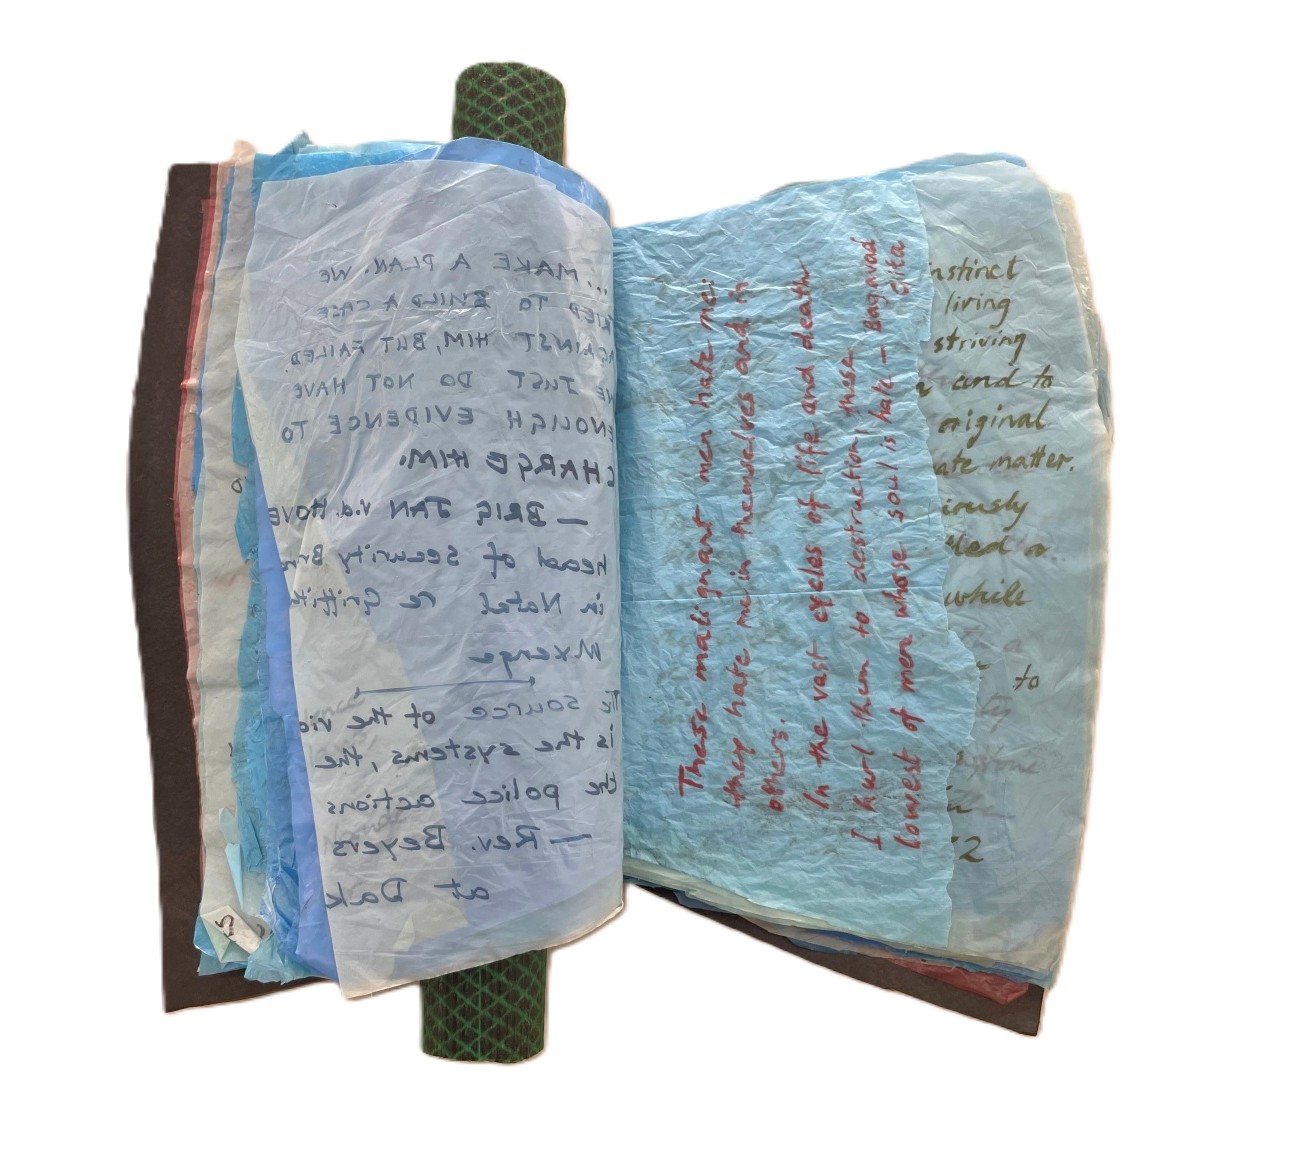 ... MAKE A PLAN. WE
TRIED TO BUILD A CASE
AGAINST HIM, BUT FAILED.
WE JUST DO NOT HAVE
ENOUGH EVIDENCE TO
CHARGE HIM.
— BRIG JAN v.d. HOVE
head of Security Bra
in Natal re Griffith
Mxenge
The source of the vio
is the systems, the
the police actions
— Rev. Beyers
at Dak
These malignant men hate me:
they hate me in themselves and in
others.
In the vast cycles of life and death
I hurl them to destruction, these
lowest of men whose soul is hate — Bagavad
Gita
instinct
living
striving
and to
original
ate matter.
iously
tled a
while
to
52